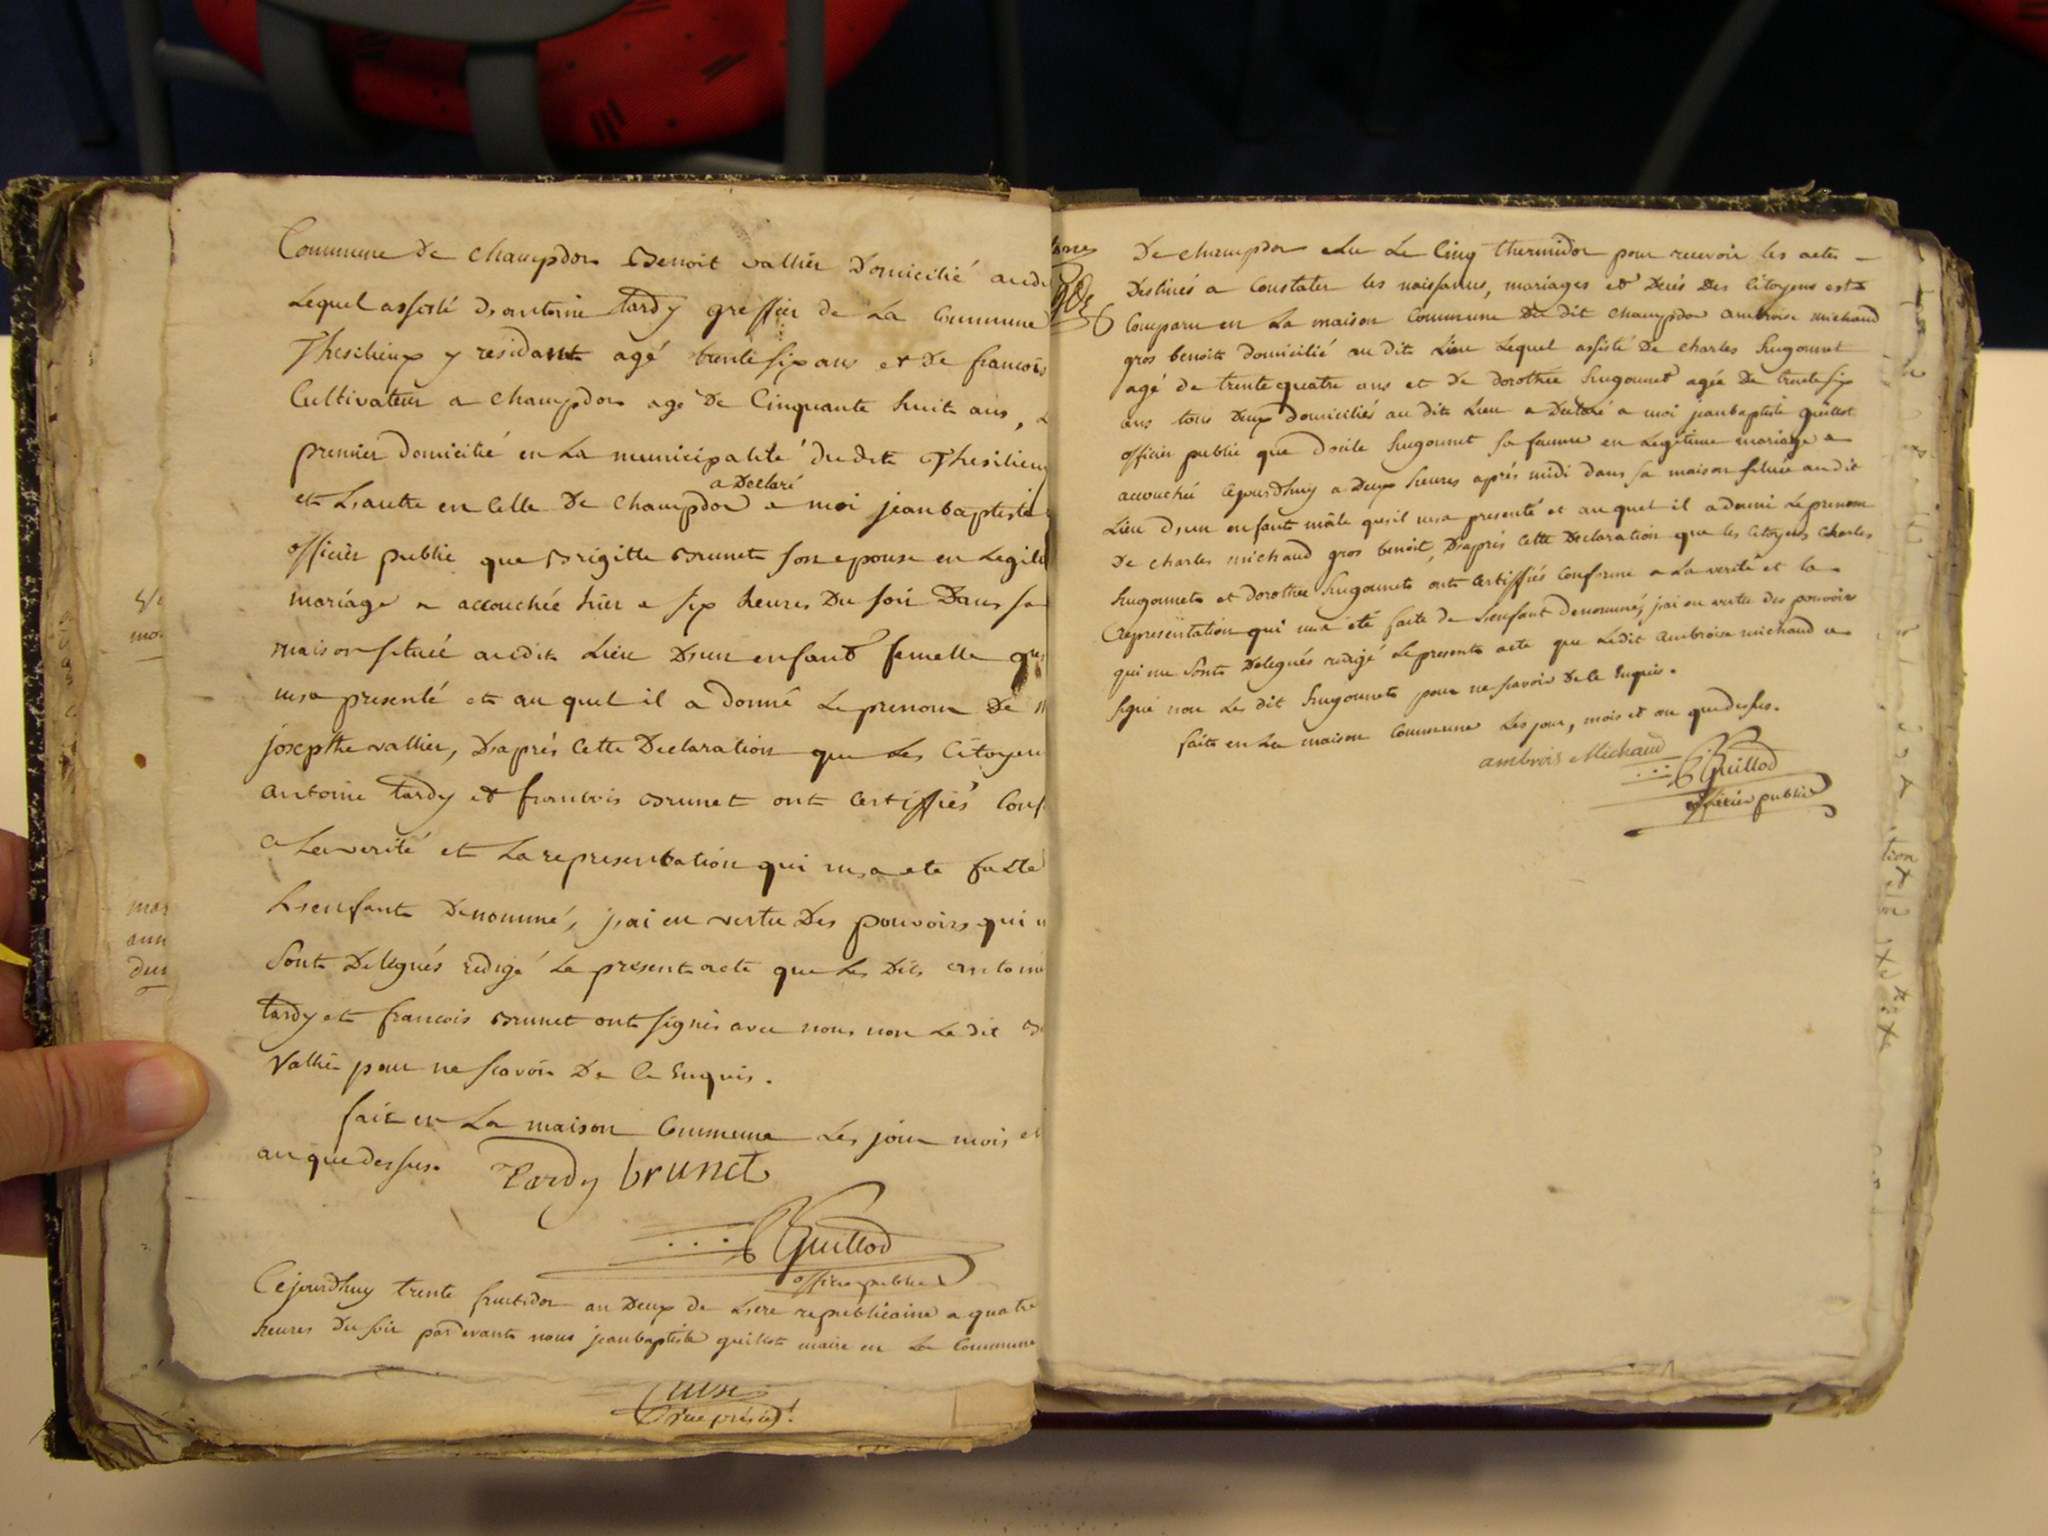 Commune De champdor Benoit vallier Domicilié audi
Lequel assisté D'antoine tardy greffier de La Commune
Thesilieux y residant agé trente six ans et de francois
Cultivateur a champdor agé De Cinquante huit ans,
premier Domicilié en La municipalité dudit Thesilieux
a Declaré
et L'autre en Celle De champdor a moi jeanbaptiste
officier public que Brigitte Brunet son epouse en Legit
mariage a accouchée hier a six heures Du soir Dans sa
maison située audit Lieu D'un enfant femelle qu
m'a presenté et auquel il a donné Le prenom De
josephte vallier, D'aprés Cette Declaration que Les Citoyen
antoine tardy et francois Brunet ont Certiffiés Conf
a La verité et La representation qui m'a ete faite
L'enfant Denommé, j'ai en vertu Des pouvoirs qui
Sont Delegués redigé Le present acte que Les Dits antoine
tardy et francois Brunet ont signés avec nous non Le dit
Vallier pour ne scavoir De Ce Enquis.
fait en La maison Commune Les jour mois et
an que dessus. Tardy brunet
Guillod
officier public
Cejourdhuy trente fructidor an Deux de L'ere republicaine a quatre
heures du soir pardevant nous jeanbaptiste guillot maire en La Commune
De champdor elu Le Cinq thermidor pour recevoir les actes
Destinés a Constater les naissances, mariages et Decés Des Citoyens est
Comparu en La maison Commune du dit champdor ambroise michaud
gros benoit domicilié au dit Lieu Lequel assisté De charles hugonnet
agé de trente quatre ans et de dorothée hugonnet agée De trente six
ans tous Deux Domiciliés au dit Lieu a Declaré a moi jeanbaptiste guillot
officier public que hugonnet sa femme en Legitime mariage a
accouchée Cejourdhuy a Deux heures aprés midi dans sa maison située audit
Lieu D'un enfant mâle qu'il m'a presenté et auquel il a donné Le prenom
De charles michaud gros benoit, D'aprés Cette Declaration que les Citoyens Charles
hugonnet et dorothée hugonnet ont Certiffiés Conforme a La verité et la
representation qui m'a été faite de L'enfant denommé, j'ai en vertu des pouvoirs
qui me sont Delegués redigé Le present acte que Ledit ambroise michaud a
signé non Les dit hugonnet pour ne scavoir De Ce Enquis.
fait en La maison Commune Les jour, mois et an que dessus.
ambrois Michaud
Guillod
officier public